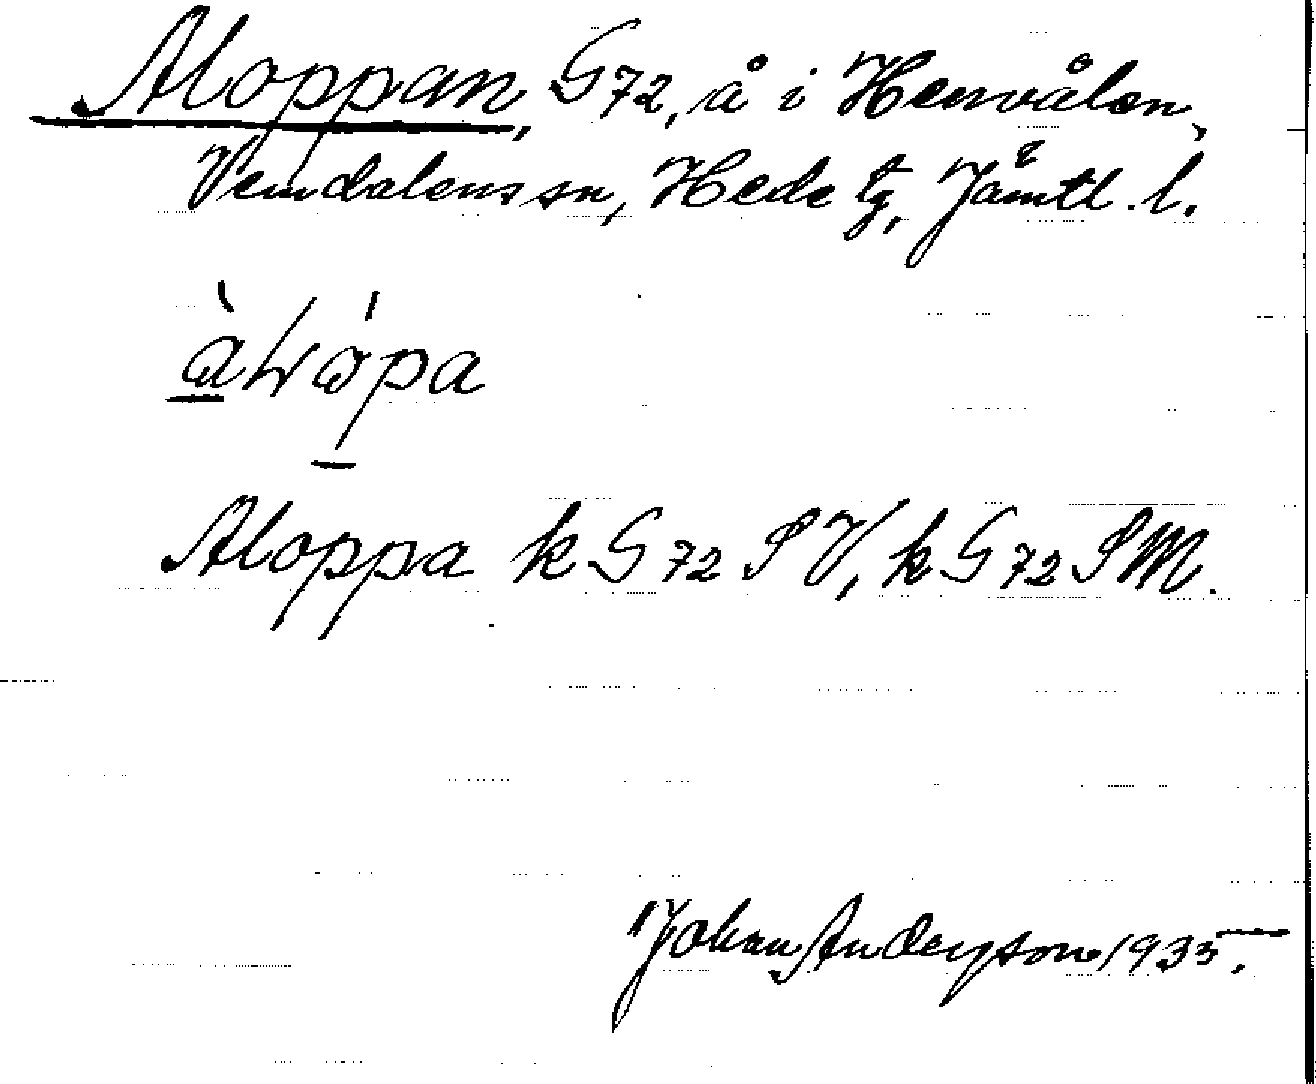 Aloppan, G72, å i Henvålen,
Vemdalens sn, Hede tg, Jämtl. l.
Aloppa k G72 SV, k G72 SM.
Johan Anderson 1935.